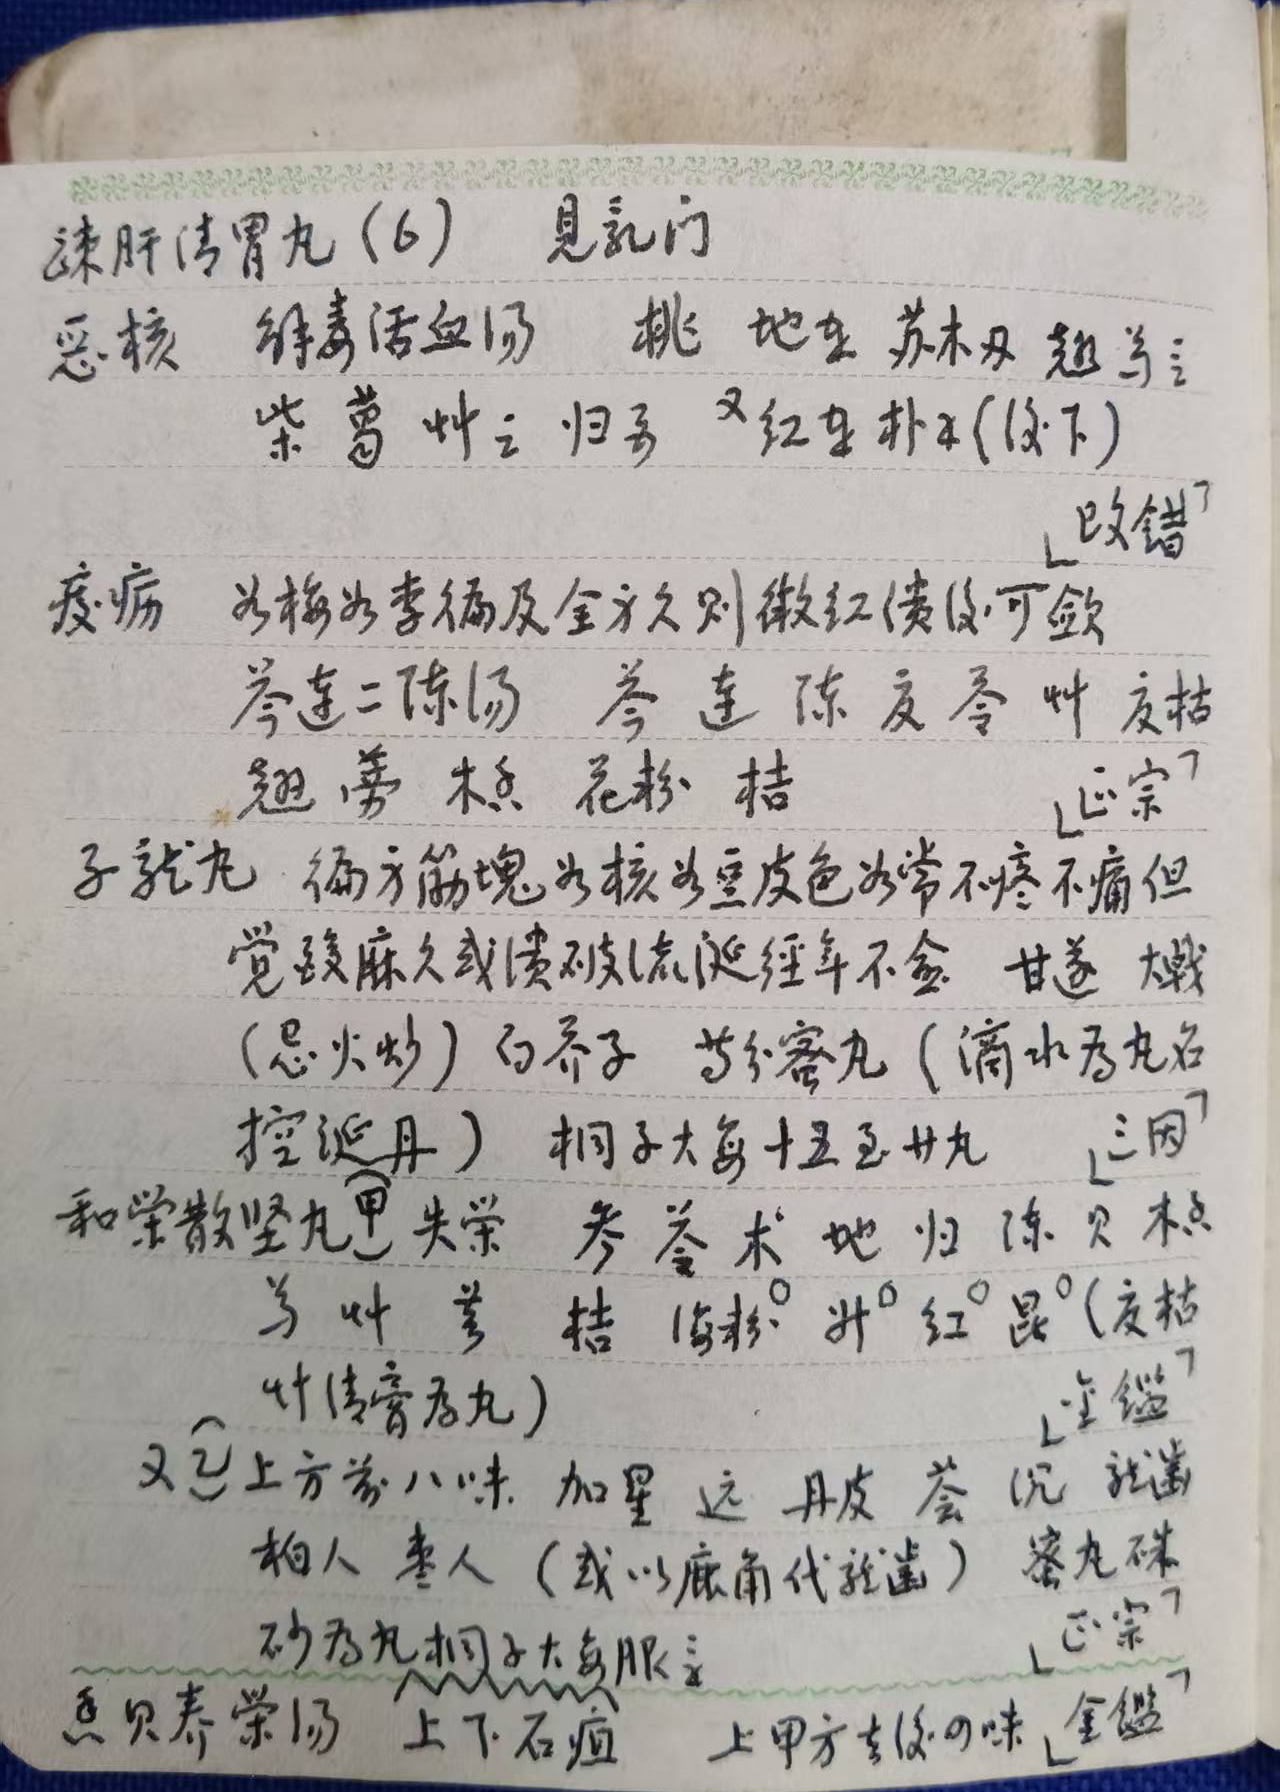 疎肝清胃丸(6) 見乳门
恶核 解毒活血汤 桃 地 苏木 翘 芍
柴 葛 艸 归 又红 朴 (後下)
「改錯」
痰疬 如梅如李徧及全方久则微红溃後可歛
芩连二陈汤 芩 连 陈 夏 苓 艸 夏枯
翘 蒡 木香 花粉 桔 「正宗」
子龙丸 徧方筋塊如核如豆皮色如常不疼不痛但
觉酸麻久或溃破流涎经年不 甘遂 大戟
(忌火炒) 白芥子 等分蜜丸 (滴水为丸名
控涎丹) 桐子大每十五至廿丸 「三因」
和荣散坚丸(甲) 失荣 参 苓 术 地 归 陈 贝 木香
芍 艸 芎 桔 海粉 升 红 昆 (夏枯
艸清膏为丸) 「金鑑」
又(乙) 上方前八味 加星 远 丹皮 荟 沉 龙齒
柏人 枣人 (或以鹿角代龙齒) 蜜丸硃
砂为丸桐子大每服 「正宗」
香贝养荣汤 上下石疽 上甲方去後四味「金鑑」